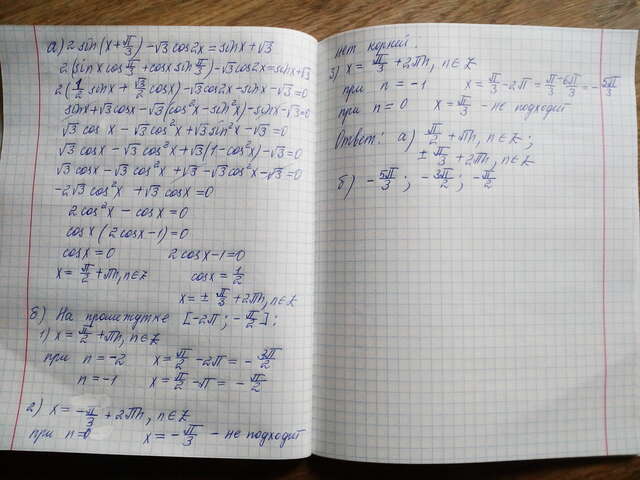 а) 2 sin(x + π/3) - √3 cos2x = sinx + √3
2(sinx cos π/3 + cosx sin π/3) - √3 cos2x = sinx + √3
2(1/2 sinx + √3/2 cosx) - √3 cos2x - sinx - √3 = 0
sinx + √3 cosx - √3(cos²x - sin²x) - sinx - √3 = 0
√3 cos x - √3 cos²x + √3 sin²x - √3 = 0
√3 cosx - √3 cos²x + √3(1 - cos²x) - √3 = 0
√3 cosx - √3 cos²x + √3 - √3 cos²x - √3 = 0
-2√3 cos²x + √3 cosx = 0
2cos²x - cosx = 0
cosx(2cosx - 1) = 0
cosx = 0    2cosx - 1 = 0
x = π/2 + πn, n∈Z    cosx = 1/2
x = ± π/3 + 2πn, n∈Z
б) На промежутке [-2π; -π/2]:
1) x = π/2 + πn, n∈Z
при n = -2    x = π/2 - 2π = - 3π/2
n = -1    x = π/2 - π = - π/2
2) x = -π/3 + 2πn, n∈Z
при n=0    x = -π/3 - не подходит
нет корней.
3) x = π/3 + 2πn, n∈Z
при n = -1    x = π/3 - 2π = π/3 - 6π/3 = - 5π/3
при n = 0    x = π/3 - не подходит
Ответ: а) π/2 + πn, n∈Z;
± π/3 + 2πn, n∈Z
б) - 5π/3; - 3π/2; - π/2